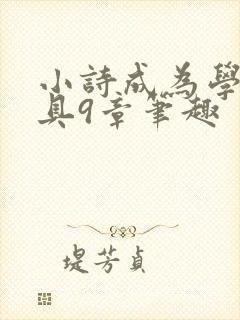 小詩成為學
具9章筆趣
堤芳貞